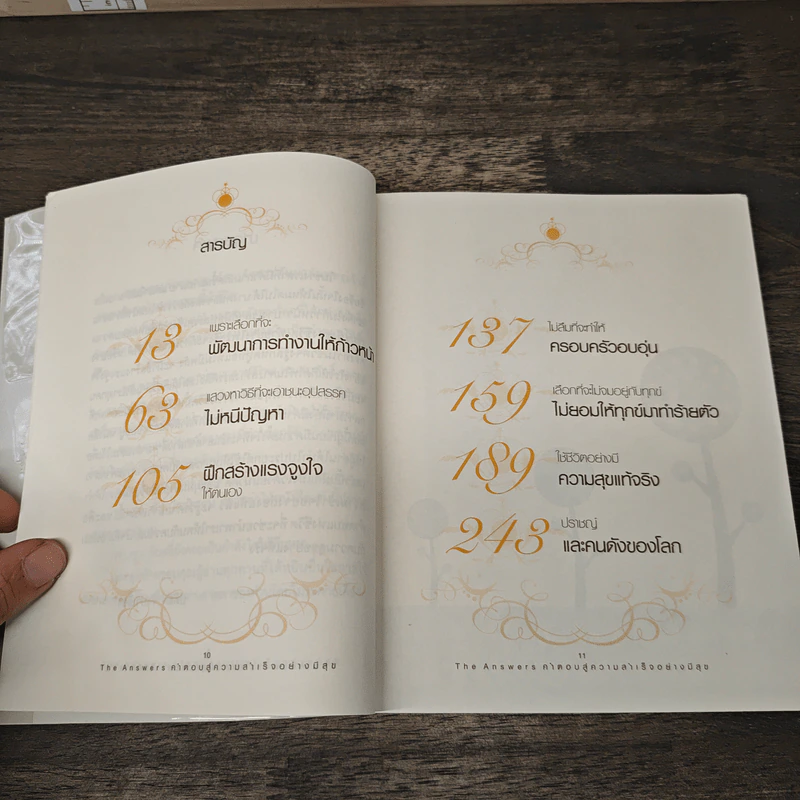 สารบัญ
13
เพราะเลือกที่จะ
พัฒนาการทำงานให้ก้าวหน้า
63
แสวงหาวิธีที่จะเอาชนะอุปสรรค
ไม่หนีปัญหา
105
ฝึกสร้างแรงจูงใจ
ให้ตนเอง
10
The Answers คำตอบสู่ความสำเร็จอย่างมีสุข
137
ไม่ลืมที่จะทำให้
ครอบครัวอบอุ่น
159
เลือกที่จะไม่จมอยู่กับทุกข์
ไม่ยอมให้ทุกข์มาทำร้ายตัว
189
ใช้ชีวิตอย่างมี
ความสุขแท้จริง
243
ปราชญ์
และคนดังของโลก
11
The Answers คำตอบสู่ความสำเร็จอย่างมีสุข